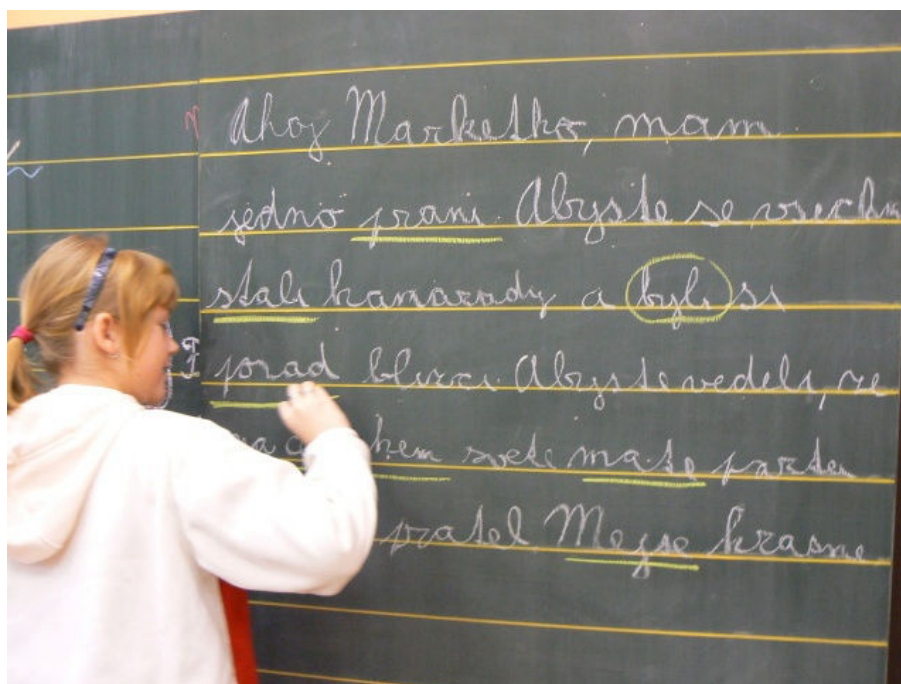 Ahoj Marketko, mam
jedno prani. Abyste se vsechn
stali kamarady a byli si
porad blizci. Abyste vedeli, ze
svete mate
pratel Mejse krasne